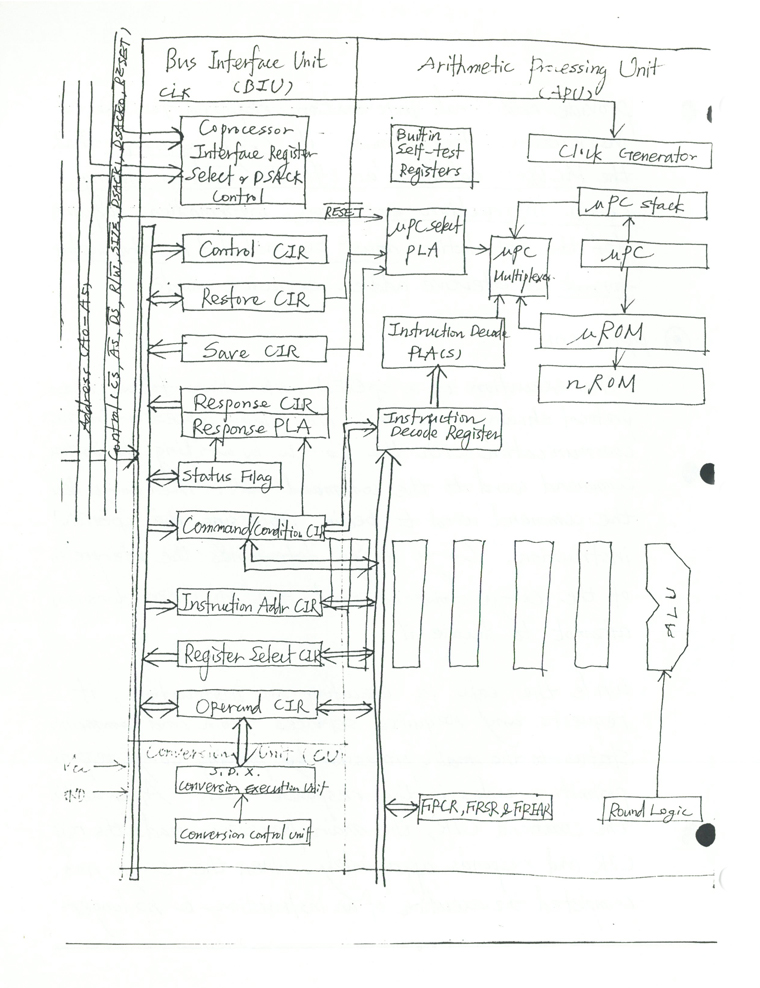 Bus Interface Unit
(BIU)
CLK
Arithmetic Processing Unit
(APU)
Control (CS, AS, DS, R/W, SIZE, DSACK1, DSACK0, RESET)
Address (A0-A5)
Coprocessor
Interface Register
Select & DSACK
Control
Builtin
Self-test
Registers
Click Generator
RESET
μPC select
PLA
μPC
Multiplexer
μPC stack
μPC
μROM
nROM
Control CIR
Restore CIR
Save CIR
Instruction Decode
PLA(S)
Response CIR
Response PLA
Instruction
Decode Register
Status Filag
Command/Condition CIR
Instruction Addr CIR
Register Select CIR
Operand CIR
ALU
Conversion Unit (CU)
Vcc
GND
S. D. X.
Conversion execution unit
Conversion control unit
FIPCR, FIRSR & FIRIAR
Round Logic